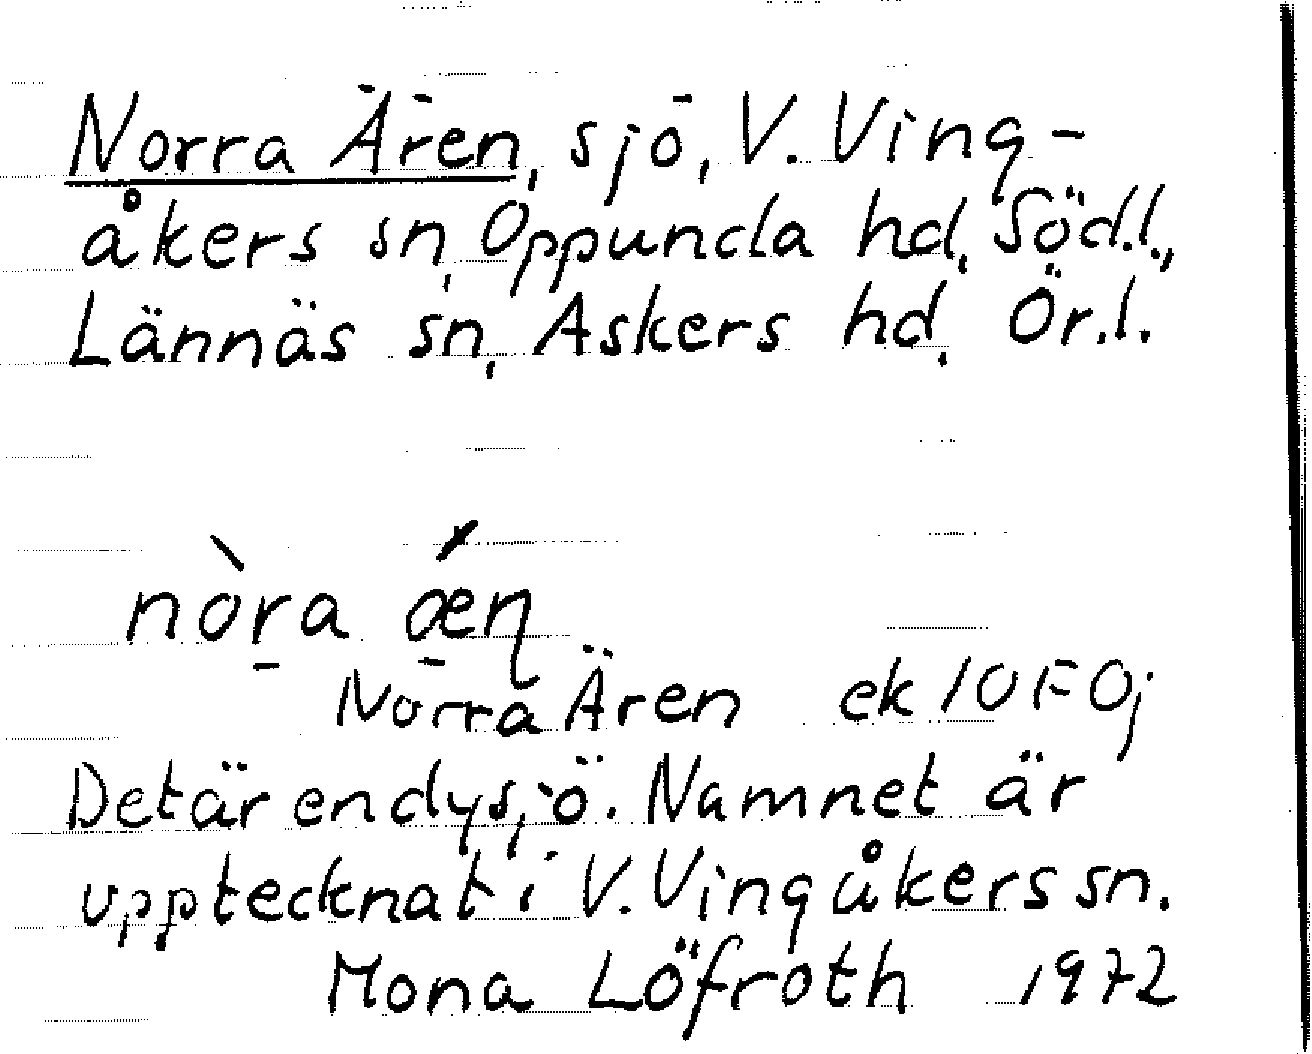 Norra Ären, sjö, V. Ving-
åkers sn, Oppunda hd, Södl.,
Lännäs sn, Askers hd, Ör.l.
nòra ǽn
Norra Ären ek 10F0j
Det är en dysjö. Namnet är
upptecknat i V. Vingåkers sn.
Mona Löfroth 1972